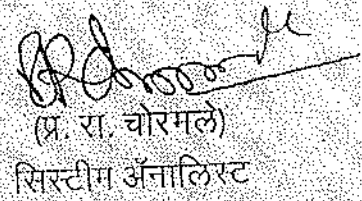 (प्र. रा. चोरमले)
सिस्टीम ॲनालिस्ट